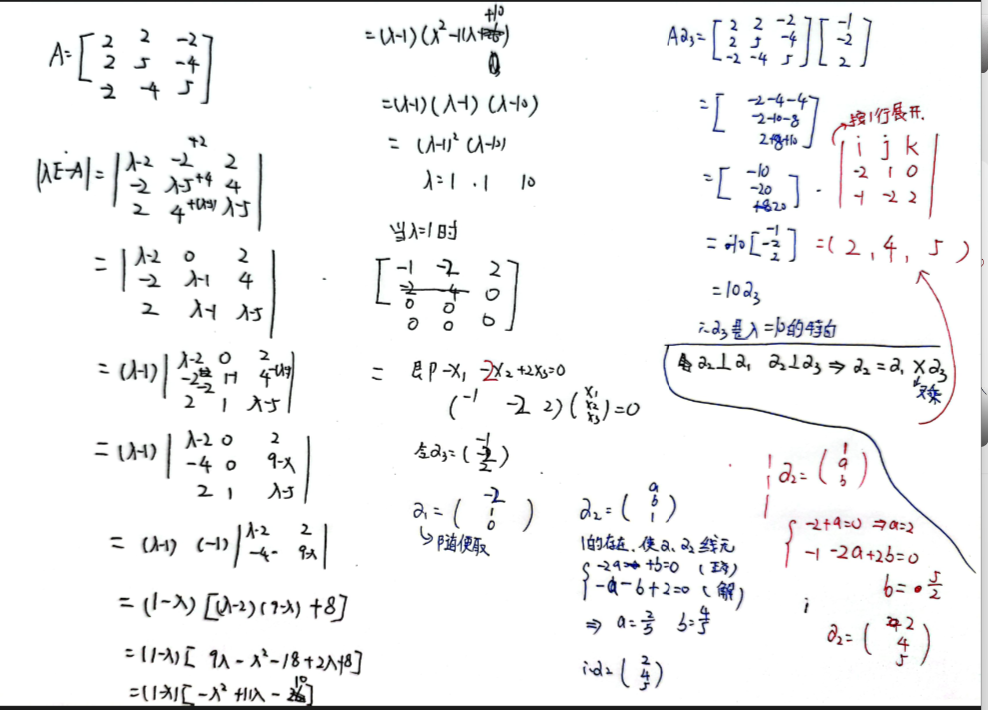 A=[2 2 -2
2 5 -4
-2 -4 5]
|λE-A|=|λ-2 -2 +2 2
-2 λ-5 +4 4
2 4 +(λ-5) λ-5|
=|λ-2 0 2
-2 λ-1 4
2 λ-1 λ-5|
=(λ-1)|λ-2 0 2
-2-2 1-1 4-(λ-5)
2 1 λ-5|
=(λ-1)|λ-2 0 2
-4 0 9-λ
2 1 λ-5|
=(λ-1)(-1)|λ-2 2
-4 9-λ|
=(1-λ)[(λ-2)(9-λ)+8]
=(1-λ)[9λ-λ²-18+2λ+8]
=(1-λ)[-λ²+11λ-10]
=(λ-1)(λ²-11λ+10)
=(λ-1)(λ-1)(λ-10)
=(λ-1)²(λ-10)
λ=1 . 1 10
当λ=1时
[-1 -2 2
0 0 0
0 0 0]
= 即P-x₁-2x₂+2x₃=0
(-1 -2 2)(x₁
x₂
x₃)=0
令a₃=(-1
-2
2)
a₁=(-2
1
0)
↳随便取
a₂=(a
b
1)
1的存在.使a₁a₂线无
{-2a+b=0
-a-b+2=0(解)
⇒ a=2/5 b=4/5
∴a₂=(2
4
5)
Aa₃=[2 2 -2
2 5 -4
-2 -4 5][-1
-2
2]
=[-2-4-4
-2-10-8
2+8+10]
=[-10
-20
20].
=10[-1
-2
2]
=10a₃
∴a₃是λ=10的特向
a₂⊥a₁ a₂⊥a₃ ⇒ a₂=a₁×a₃
叉乘
按1行展开.
|i j k
-2 1 0
-1 -2 2|
=(2,4,5)
a₂=(1
a
b)
{-2+a=0 ⇒a=2
-1-2a+2b=0
b=5/2
a₂=(2
4
5)